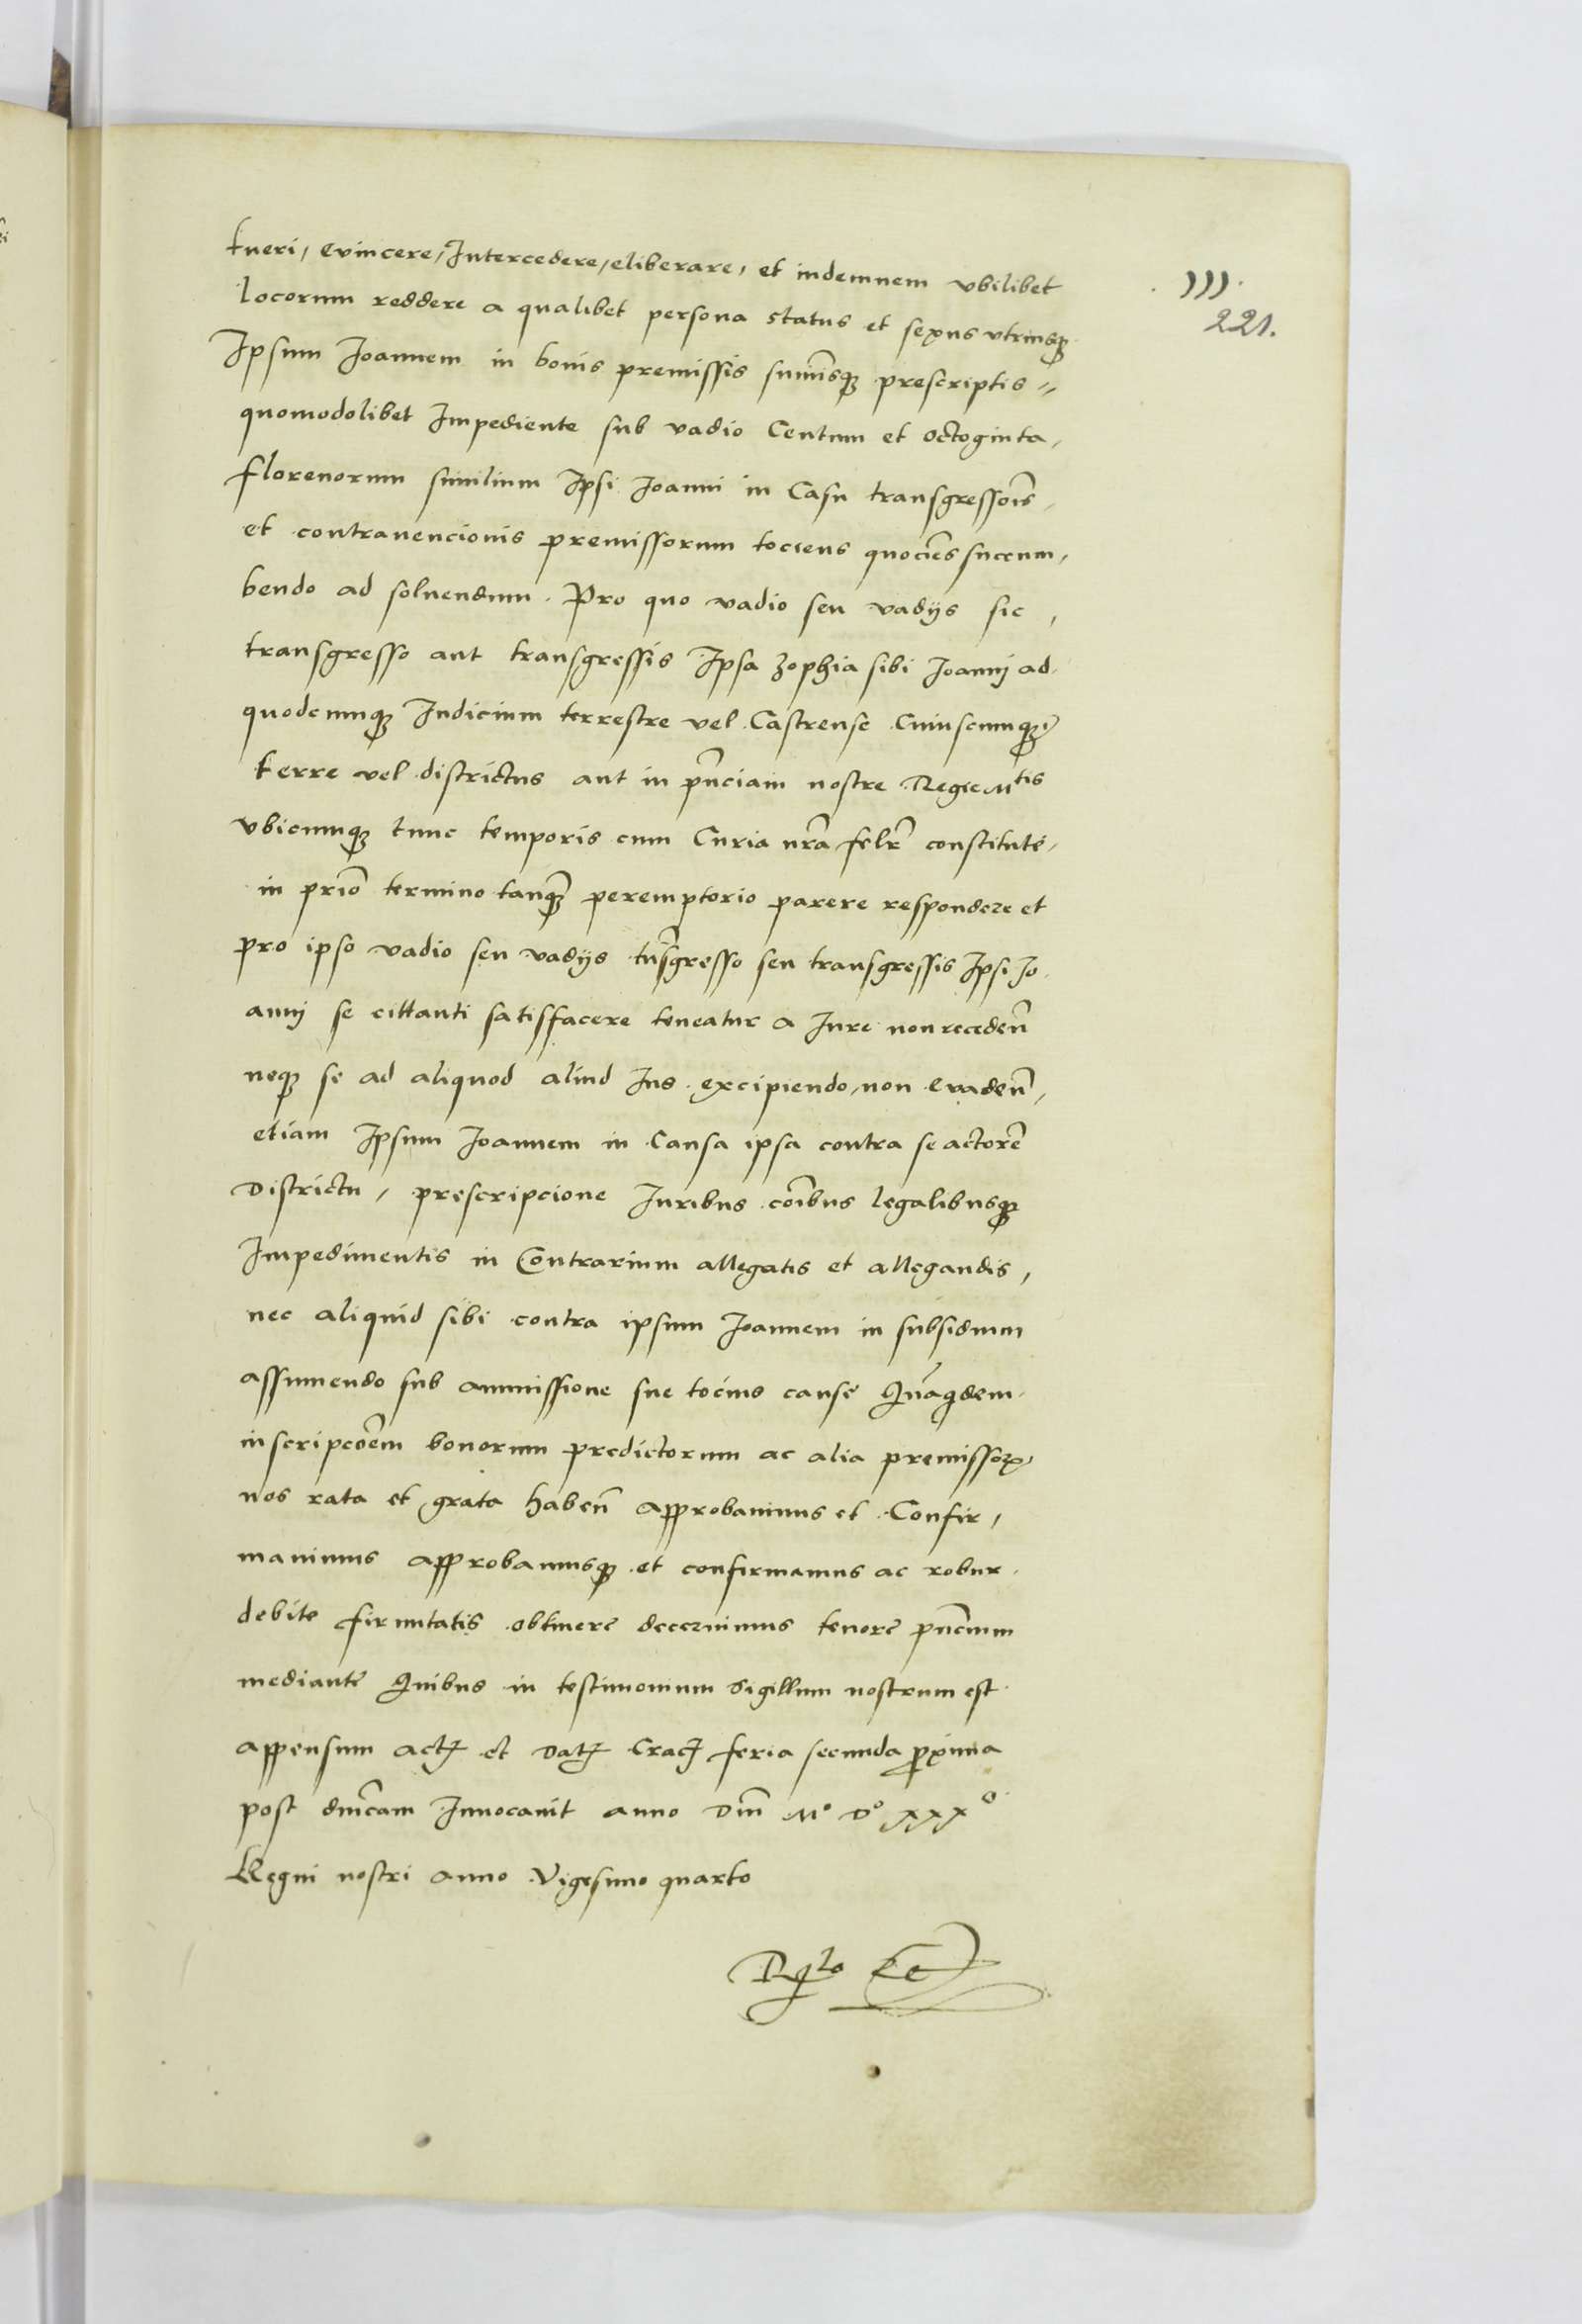 . ))) .
221.
tueri, evincere, Intercedere, eliberare, et indemnem vbilibet
locorum reddere a qualibet persona status et sexus vtriusq3
Ipsum Joannem in bonis premissis sum̃isq3 prescriptis,,
quomodolibet Impediente sub vadio Centum et octoginta,
florenorum similium Ipsi Joanni in Casu transgressiõis,
et contravencionis premissorum tociens quociẽs succum,
bendo ad soluendum. Pro quo vadio seu vadijs sic,
transgresso aut transgressis Ipsa Zophia sibi Joannj ad
quodcumq3 Iudicium terrestre vel Castrense Cuiuscumq3
terre vel districtus aut in pñciam nostre Regie Mtis
vbicumq3 tunc temporis cum Curia nrã felr̃ constitute,
in prio͂ termino tanq3̃ peremptorio parere respondere et
pro ipso vadio seu vadijs tñsgresso seu transgressis Ipsi Jo
annj se cittanti satisfacere teneatur a Jure non receden̄
neq3 se ad aliquod aliud Jus excipiendo, non Evaden̄,
etiam Ipsum Joannem in Causa ipsa contra se actorẽ
Districtu, prescripcione Juribus com̃ibus legalibusq3
Impedimentis in Contrarium allegatis et allegandis,
nec aliquid sibi contra ipsum Joannem in subsidium
assumendo sub ammissione sue tocius cause Quãquidem
inscripcõem bonorum predictorum ac alia premissor̃,
nos rata et grata haben̄ approbauimus et Confir,
mauimus approbamusq3 et confirmamus ac robur
debite firmitatis obtinere decernimus tenore pñcium
mediante Quibus in testimonium Sigillum nostrum est
appensum act3 et Dat3 Crac3 feria secunda p̃xima
post dnĩcam Inuocauit anno Dnĩ Mo Do xxxo
Regni nostri anno Vigesimo quarto